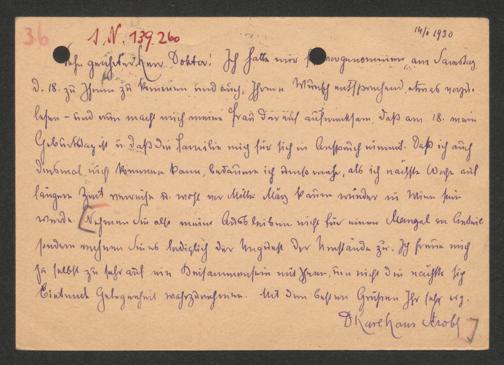 36
I.N. 139.260
14/I 1930
Sehr geehrter Herr Doktor! Ich hatte mir vorgenommen, am Samstag
d. 18. zu Ihnen zu kommen und auch, Ihrem Wunsch entsprechend etwas vorzu-
lesen – und nun macht mich meine Frau darauf aufmerksam, daß am 18. mein
Geburtstag ist u. daß die Familie mich für sich in Anspruch nimmt. Daß ich auch
diesmal nicht kommen kann, bedauere ich umsomehr, als ich nächste Woche auf
längere Zeit verreise u. wohl vor Mitte März kaum wieder in Wien sein
werde. Nehmen Sie also mein Ausbleiben nicht für einen Mangel an
sondern rechnen Sie es lediglich der Ungunst der Umstände zu. Ich freue mich
ja selbst zu sehr auf ein Beisammensein mit Ihnen, um nicht die nächste sich
bietende Gelegenheit wahrzunehmen. Mit den besten Grüßen Ihr sehr erg.
Dr Karl Hans Strobl